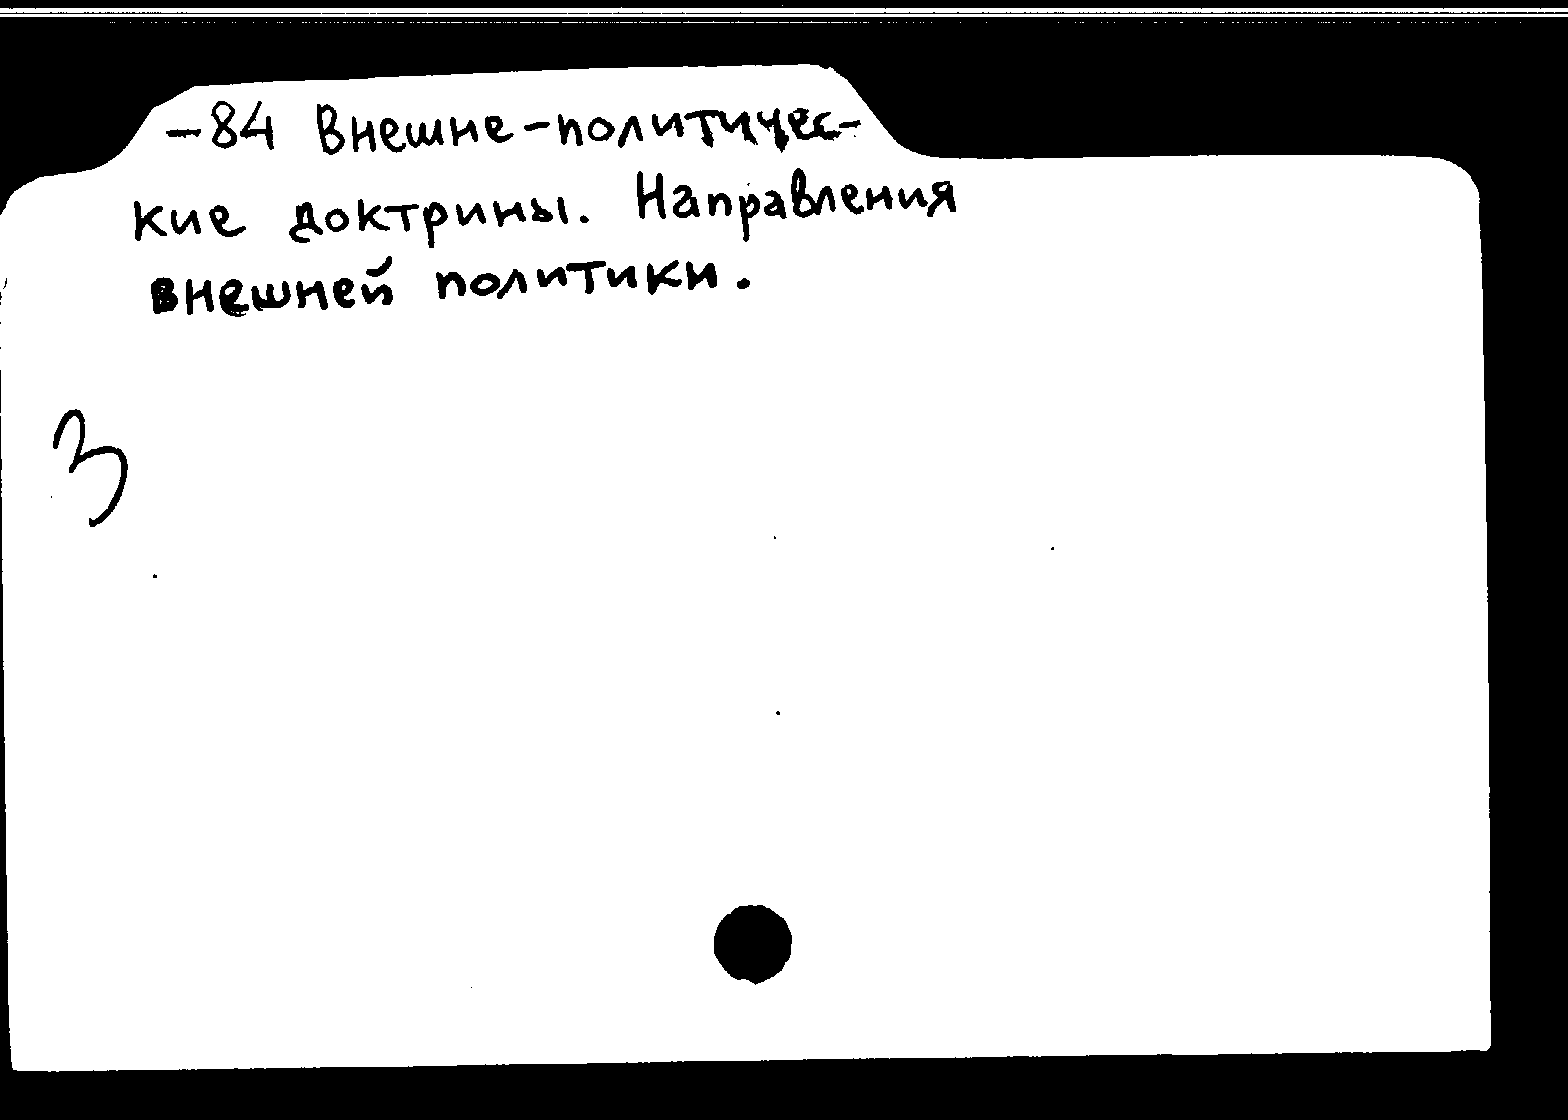 -84 Внешне-политичес-
кие доктрины. Направления
внешней политики.
3